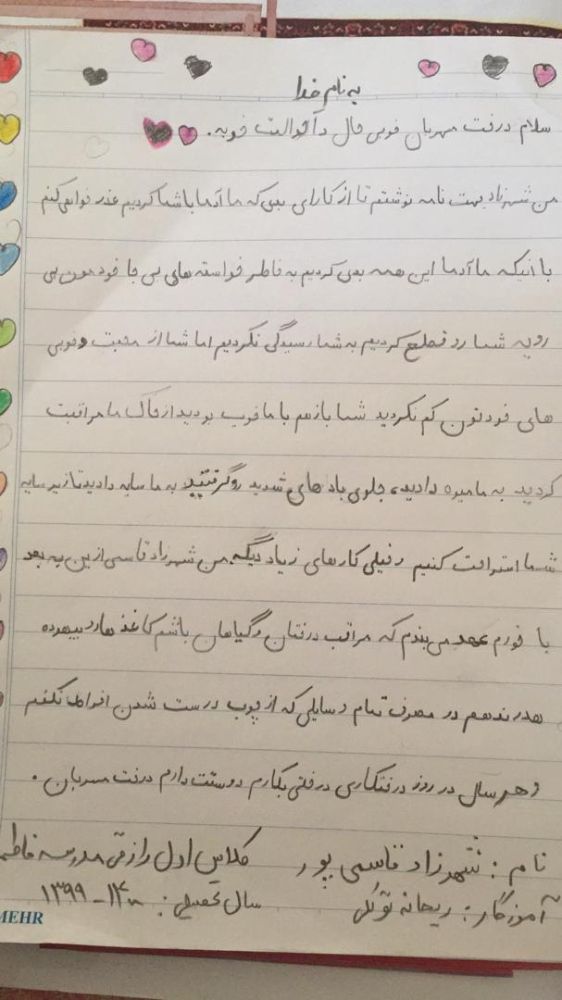 به نام خدا
سلام درخت مهربان خوبی حال و احوالت خوبه.
من شهرزاد بهت نامه نوشتم تا از کارای بدی که ما آدما با شما کردیم عذر خواهی کنم
با اینکه ما آدما این همه بدی کردیم به خاطر خواسته های بی جا خودمون بی
رویه شما رو قطع کردیم به شما رسیدگی نکردیم اما شما از محبت و خوبی
های خودتون کم نکردید شما بازهم با ما خوب بودید از خاک ما مراقبت
کردید به ما میوه دادید، جلوی باد های شدید رو گرفتید به ما سایه دادید تا زیر سایه
شما استراحت کنیم و خیلی کارهای زیاد دیگه. من شهرزاد قاسمی از این به بعد
با خودم عهد می بندم که مراقب درختان و گیاهان باشم کاغذ ها رو بیهوده
هدر ندهم در مصرف تمام وسایلی که از چوب درست شدن افراط نکنم
و هر سال در روز درختکاری درختی بکارم دوستت دارم درخت مهربان.
نام: شهرزاد قاسمی پور کلاس اول رازقی مدرسه فاطمه
آموزگار: ریحانه توکلی سال تحصیلی: ۱۴۰۰-۱۳۹۹
MEHR